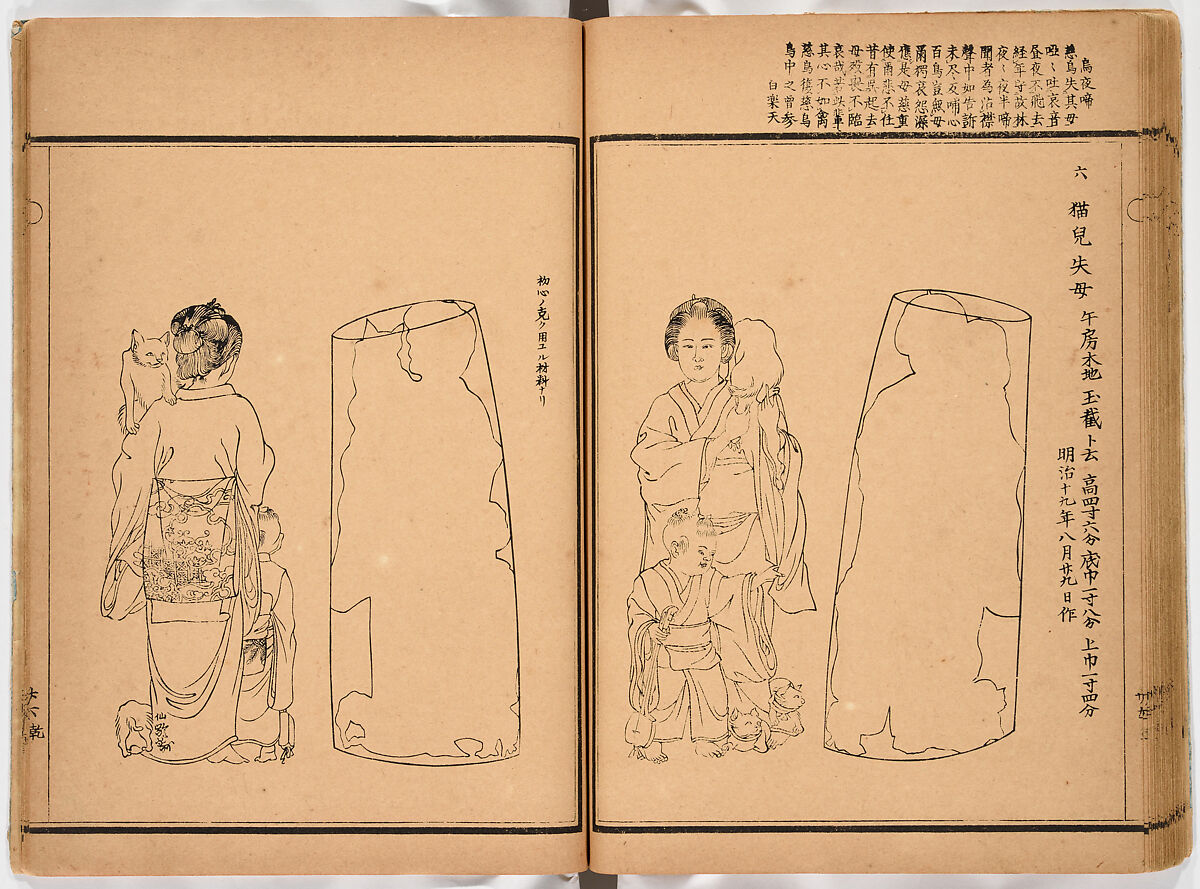 烏夜啼
慈烏失其母
啞〻吐哀音
昼夜不飛去
経年守故林
夜〻夜半啼
聞者為沾襟
声中如告訴
未尽反哺心
百鳥豈無母
爾獨哀怨深
應是母慈重
使爾悲不任
昔有呉起去
母歿喪不臨
哀哉若此輩
其心不如禽
慈烏復慈烏
鳥中之曽参
白楽天
六 猫兒失母 午房木地 玉截ト云 高四寸六分 底巾一寸八分 上巾一寸四分
明治十九年八月廿九日作
物心ノ克ク用ユル材料ナリ
仙
六 乾